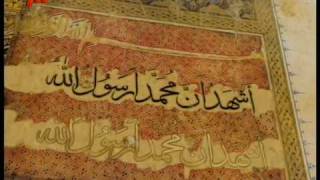 اشهد ان محمدا رسول الله
اشهد ان محمدا رسول الله